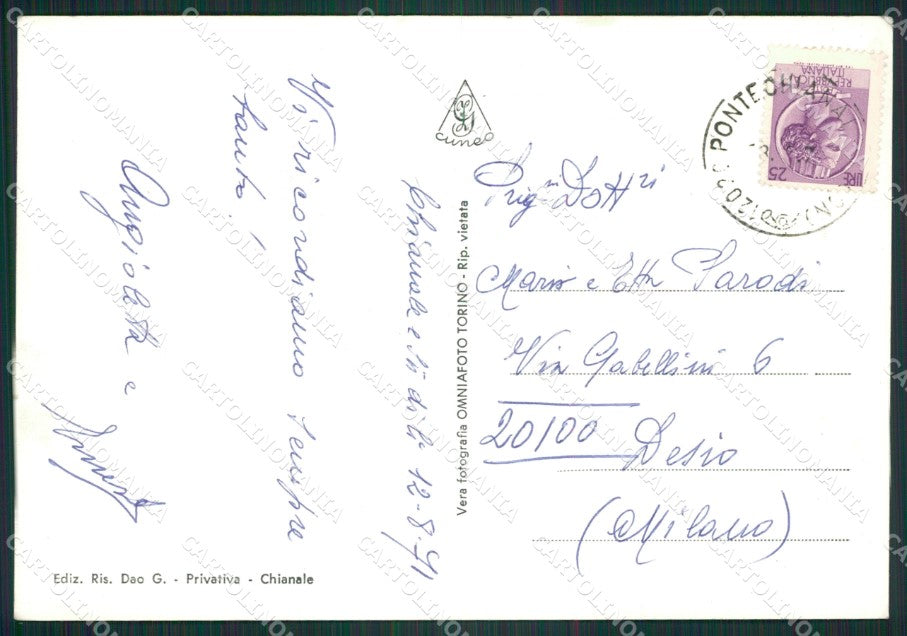 Vi ricordiamo sempre
tanto.
Angioletta e
Chianale 12-8-71
cuneo
Vera fotografia OMNIAFOTO TORINO - Rip. vietata
Ediz. Ris. Dao G. - Privativa - Chianale
REPUBBLICA
ITALIANA
LIRE 25
12020 PONTECHIANALE
Dott.ri
Mario e Etta Parodi
Via Gabellini 6
20100 Desio
(Milano)
CARTOLINOMANIA